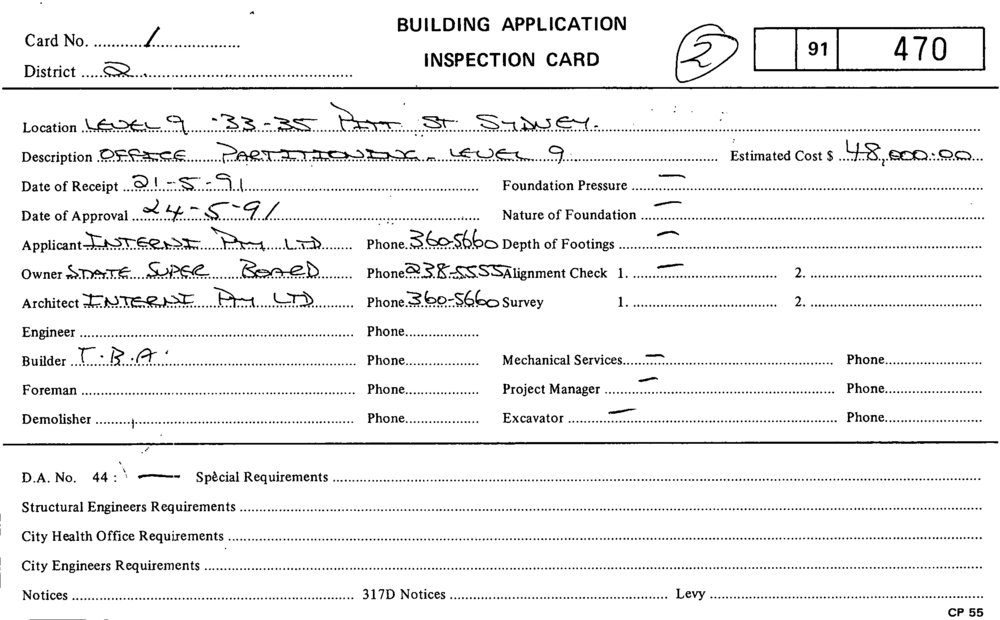 BUILDING APPLICATION
Card No. 1
INSPECTION CARD
2
91 470
District 2
Location LEVEL 9 33-35 PITT ST SYDNEY.
Description OFFICE PARTITIONING - LEVEL 9 Estimated Cost $ 48,000.00
Date of Receipt 21-5-91 Foundation Pressure —
Date of Approval 24-5-91 Nature of Foundation —
Applicant INTERNI PTY LTD Phone 360-5660 Depth of Footings —
Owner STATE SUPER BOARD Phone 238-5555 Alignment Check 1. — 2.
Architect INTERNI PTY LTD Phone 360-5660 Survey 1. 2.
Engineer Phone
Builder T.B.A. Phone Mechanical Services — Phone
Foreman Phone Project Manager — Phone
Demolisher Phone Excavator — Phone
D.A. No. 44 : — Special Requirements
Structural Engineers Requirements
City Health Office Requirements
City Engineers Requirements
Notices 317D Notices Levy
CP 55